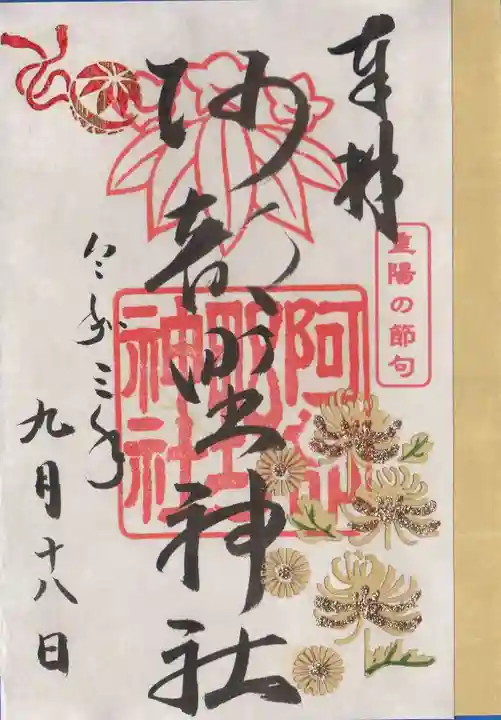 奉拝
重陽の節句
阿部野神社
阿部野神社
令和三年
九月十八日